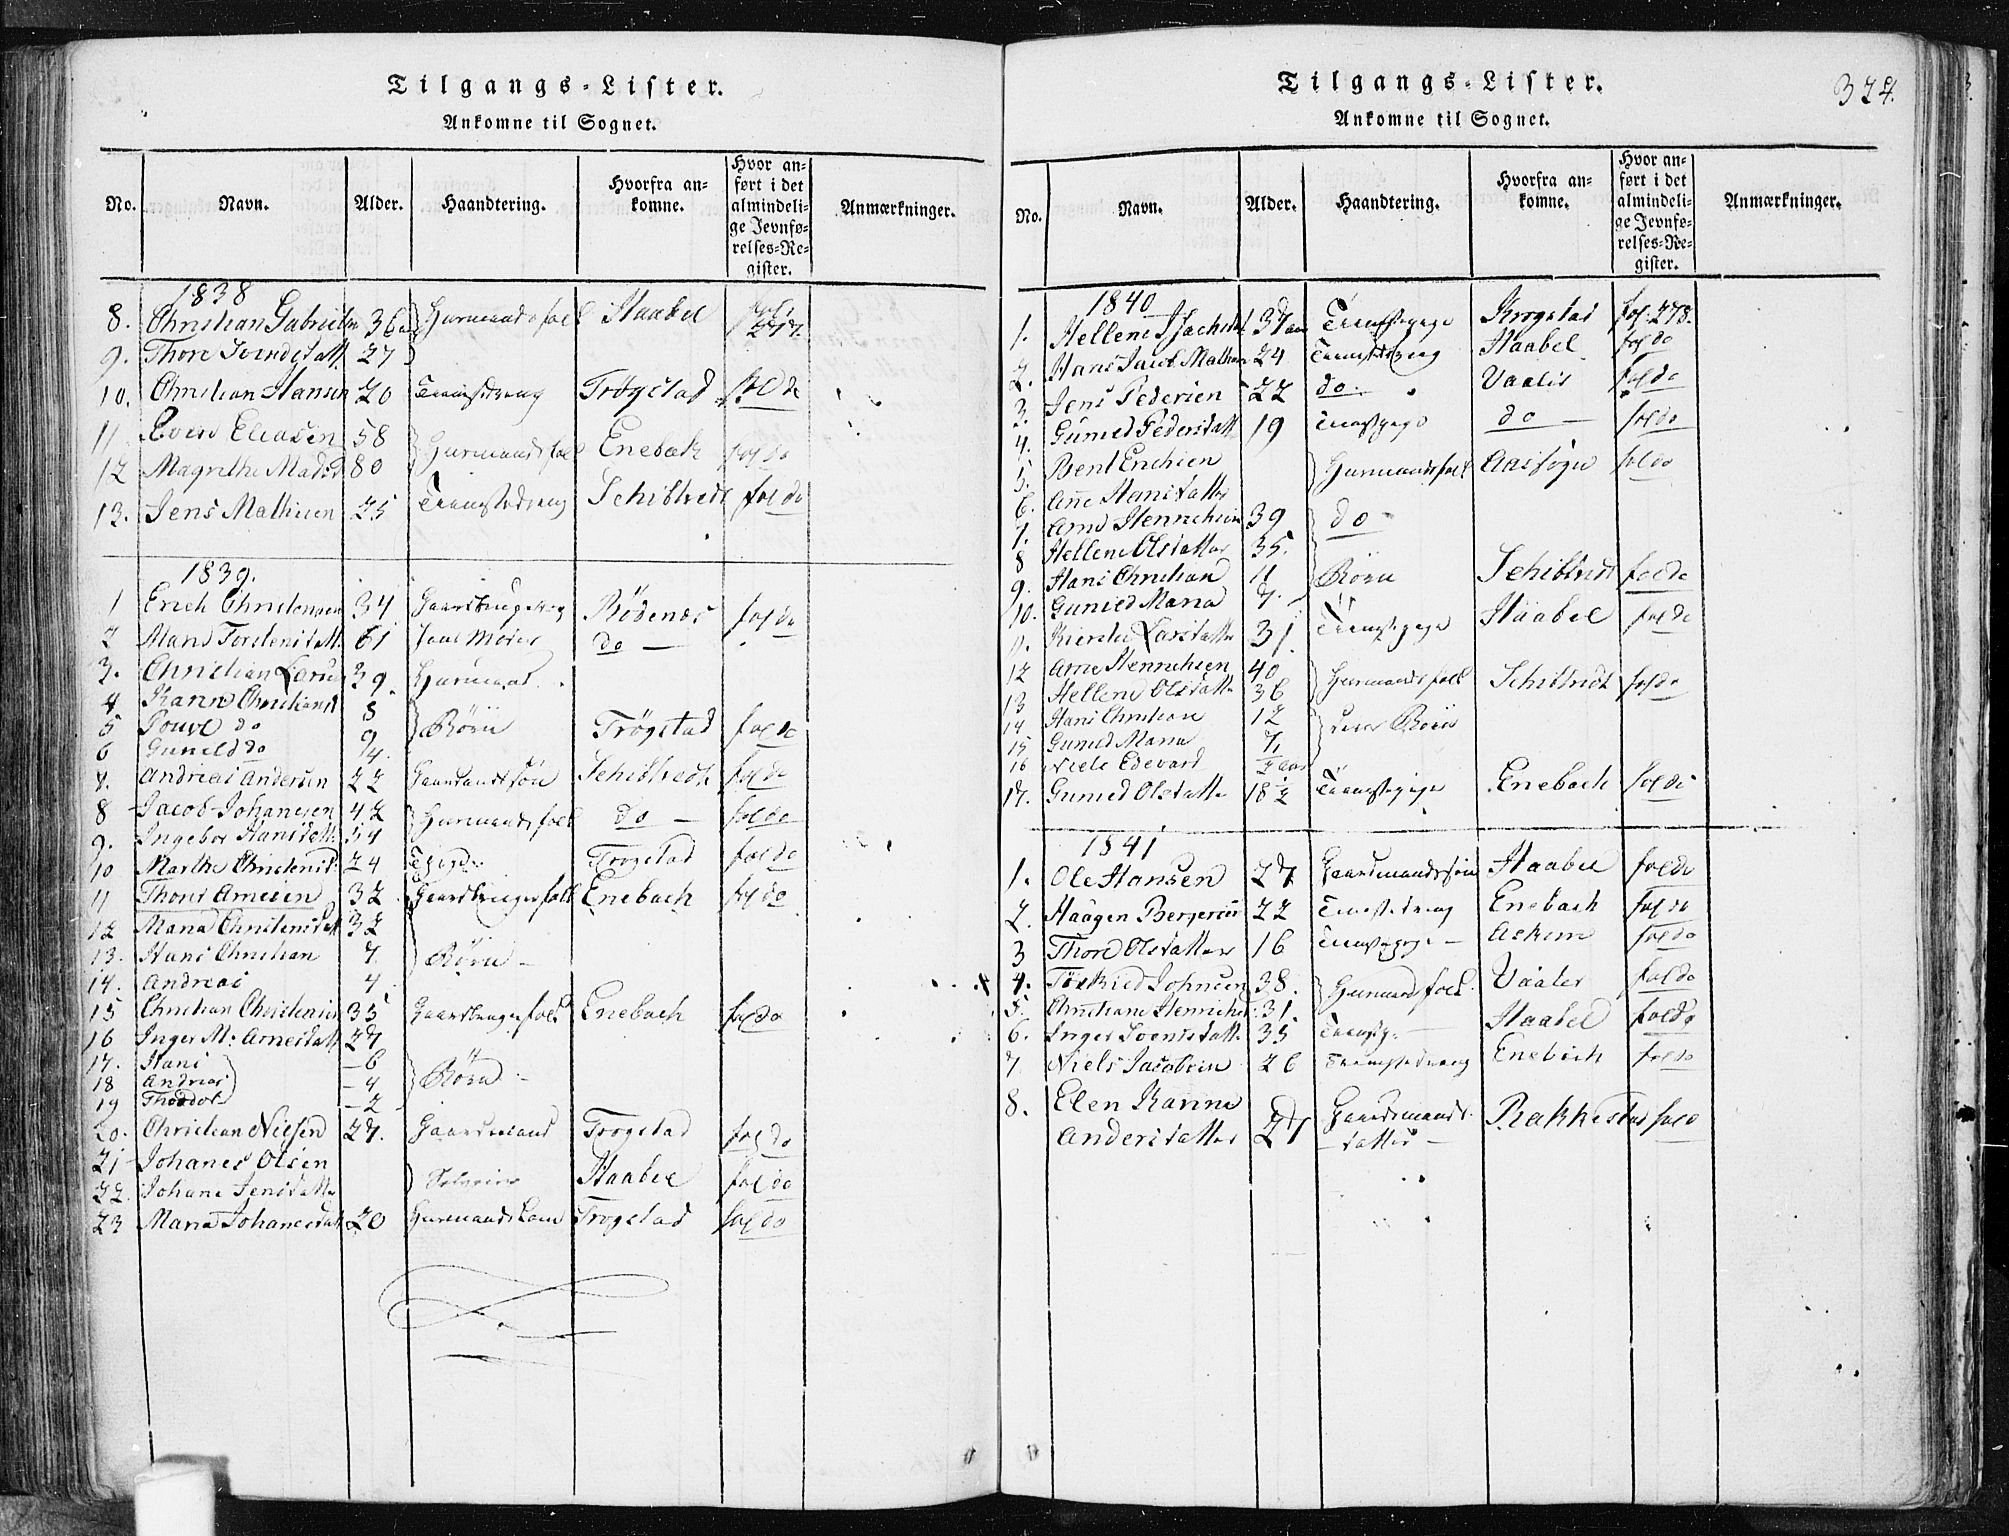 Tilgangs-Lister.
Ankomne til Sognet.
No. Navn. Alder. Haandtering. Hvorfra ankomne. Hvor anført i det almindelige Jevnførelses-Register. Anmærkninger.
1838
8. Christian Gabrielsen 36 Huusmandsfolk Haabel fol. 277.
9. Thore Svendsdatt. 27
10. Christian Hansen 20 Tienistedreng Trøgstad fol do
11. Even Eliasen 58 Huusmandsfolk Enebak fol do
12 Magrethe Madsd 80
13. Jens Mathiesen 25 Tienistedreng Schibtvedt fol do
1839.
1 Erich Christensen 34 Gaardbruger Rödenæs fol do
2 Mari Torstensdatt. 61 do
3. Christian Larse 39. Huusmand
4 Karen Christiansd 8 Børn Trögstad fol do
5 Pouel do 9
6 Gunild do 4.
7. Andreas Andersen 22 Gaardmandssön Schibtvedt fol do
8 Jacob Johanesen 42 Huusmandsfolk do fol do
9. Ingebor Hansdatt. 54
10 Marthe Christensd. 24 Tpige Trogstad fol do
11 Thoris Arnesen 32 Gaardbrugerfolk Enebach fol do
12 Maria Christensdatt 32
13. Hans Christian 7 Börn
14. Andreas 4
15 Christian Christensen 35 Gaardbrugerfolk Enebach fol do
16 Inger M: Arnesdatt 27
17. Hans 6 Börn
18 Andreas 4
19 Theodor 2
20. Christian Nielsen 27. Gaardmand Trogstad fol do
21 Johanes Olsen Haabel fol do
22. Johane Jensdatte
23 Maria Johanesdatt 20 Huusmandskone Trogstad fol do

Tilgangs-Lister. 324.
Ankomne til Sognet.
No. Navn. Alder. Haandtering. Hvorfra ankomne. Hvor anført i det almindelige Jevnførelses-Register. Anmærkninger.
1840
1. Hellene 37 aar Tienistepige Krogstad fol. 278.
2. Hans Jacob Mathies 24 Tienistedreng Haabel fol do
3. Jens Pedersen 22 do Vaaler fol do
4. Gunild Pedersdatt 19 Tienistpige do fol do
5. Bent Erichsen Huusmandsfolk Aassogn fol do
6. Anne Hansdatter
7. Arne Henrichsen 39 do
8 Hellene Olsdatter 35.
9. Hans Christian 11 Börn Schibtvedt fol do
10. Gunild Maria 7.
11. Kierstie Larsdatter 31 Tienistepige Haabel fol do
12 Arne Henrichsen 40 Huusmandsfolk Schibtvedt fol do
13 Hellene Olsdatte 36
14 Hans Christian 12 deres Börn
15 Gunild Maria 7.
16 Niels Edevard 2 aar
17. Gunild Olsdatte 18½ Tienistepige Enebach fol do
1841
1. Ole Hansen 27 Gaardmandssön Haabel fol do
2. Haagen Bergersen 22 Tienistedreng Enebach fol do
3 Thore Olsdatter 16 Tienistepige Askim fol do
4. Torkild Johnsen 38. Huusmandsfolk Vaaler fol do
5. Christiane Henrichs 31.
6. Inger Svensdatt. 35 Tienistp. Haabel fol do
7 Niels Jacobsen 26 Tienistedreng Enebach fol do
8. Elen Karine Andersdatter 27 Gaardmandsdatter Rakkestad fol do